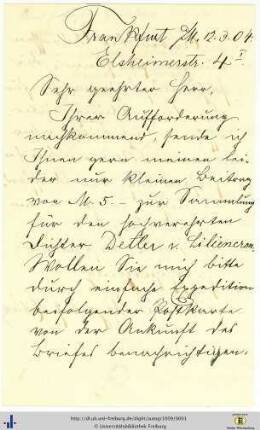 Frankfurt a/M. 12.3.04.
Elsheimerstr. 4 I
Sehr geehrter Herr,
Ihrer Aufforderung
nachkommend, sende ich
Ihnen gern meinen lei-
der nur kleinen Beitrag
von M. 5 – zur Sammlung
für den hochverehrten
Dichter Detlev v. Liliencron.
Wollen Sie mich bitte
durch einfache Expedition
beifolgender Postkarte
von der Ankunft des
Briefes benachrichtigen.
http://dl.ub.uni-freiburg.de/diglit/autogr1009/0001
© Universitätsbibliothek Freiburg